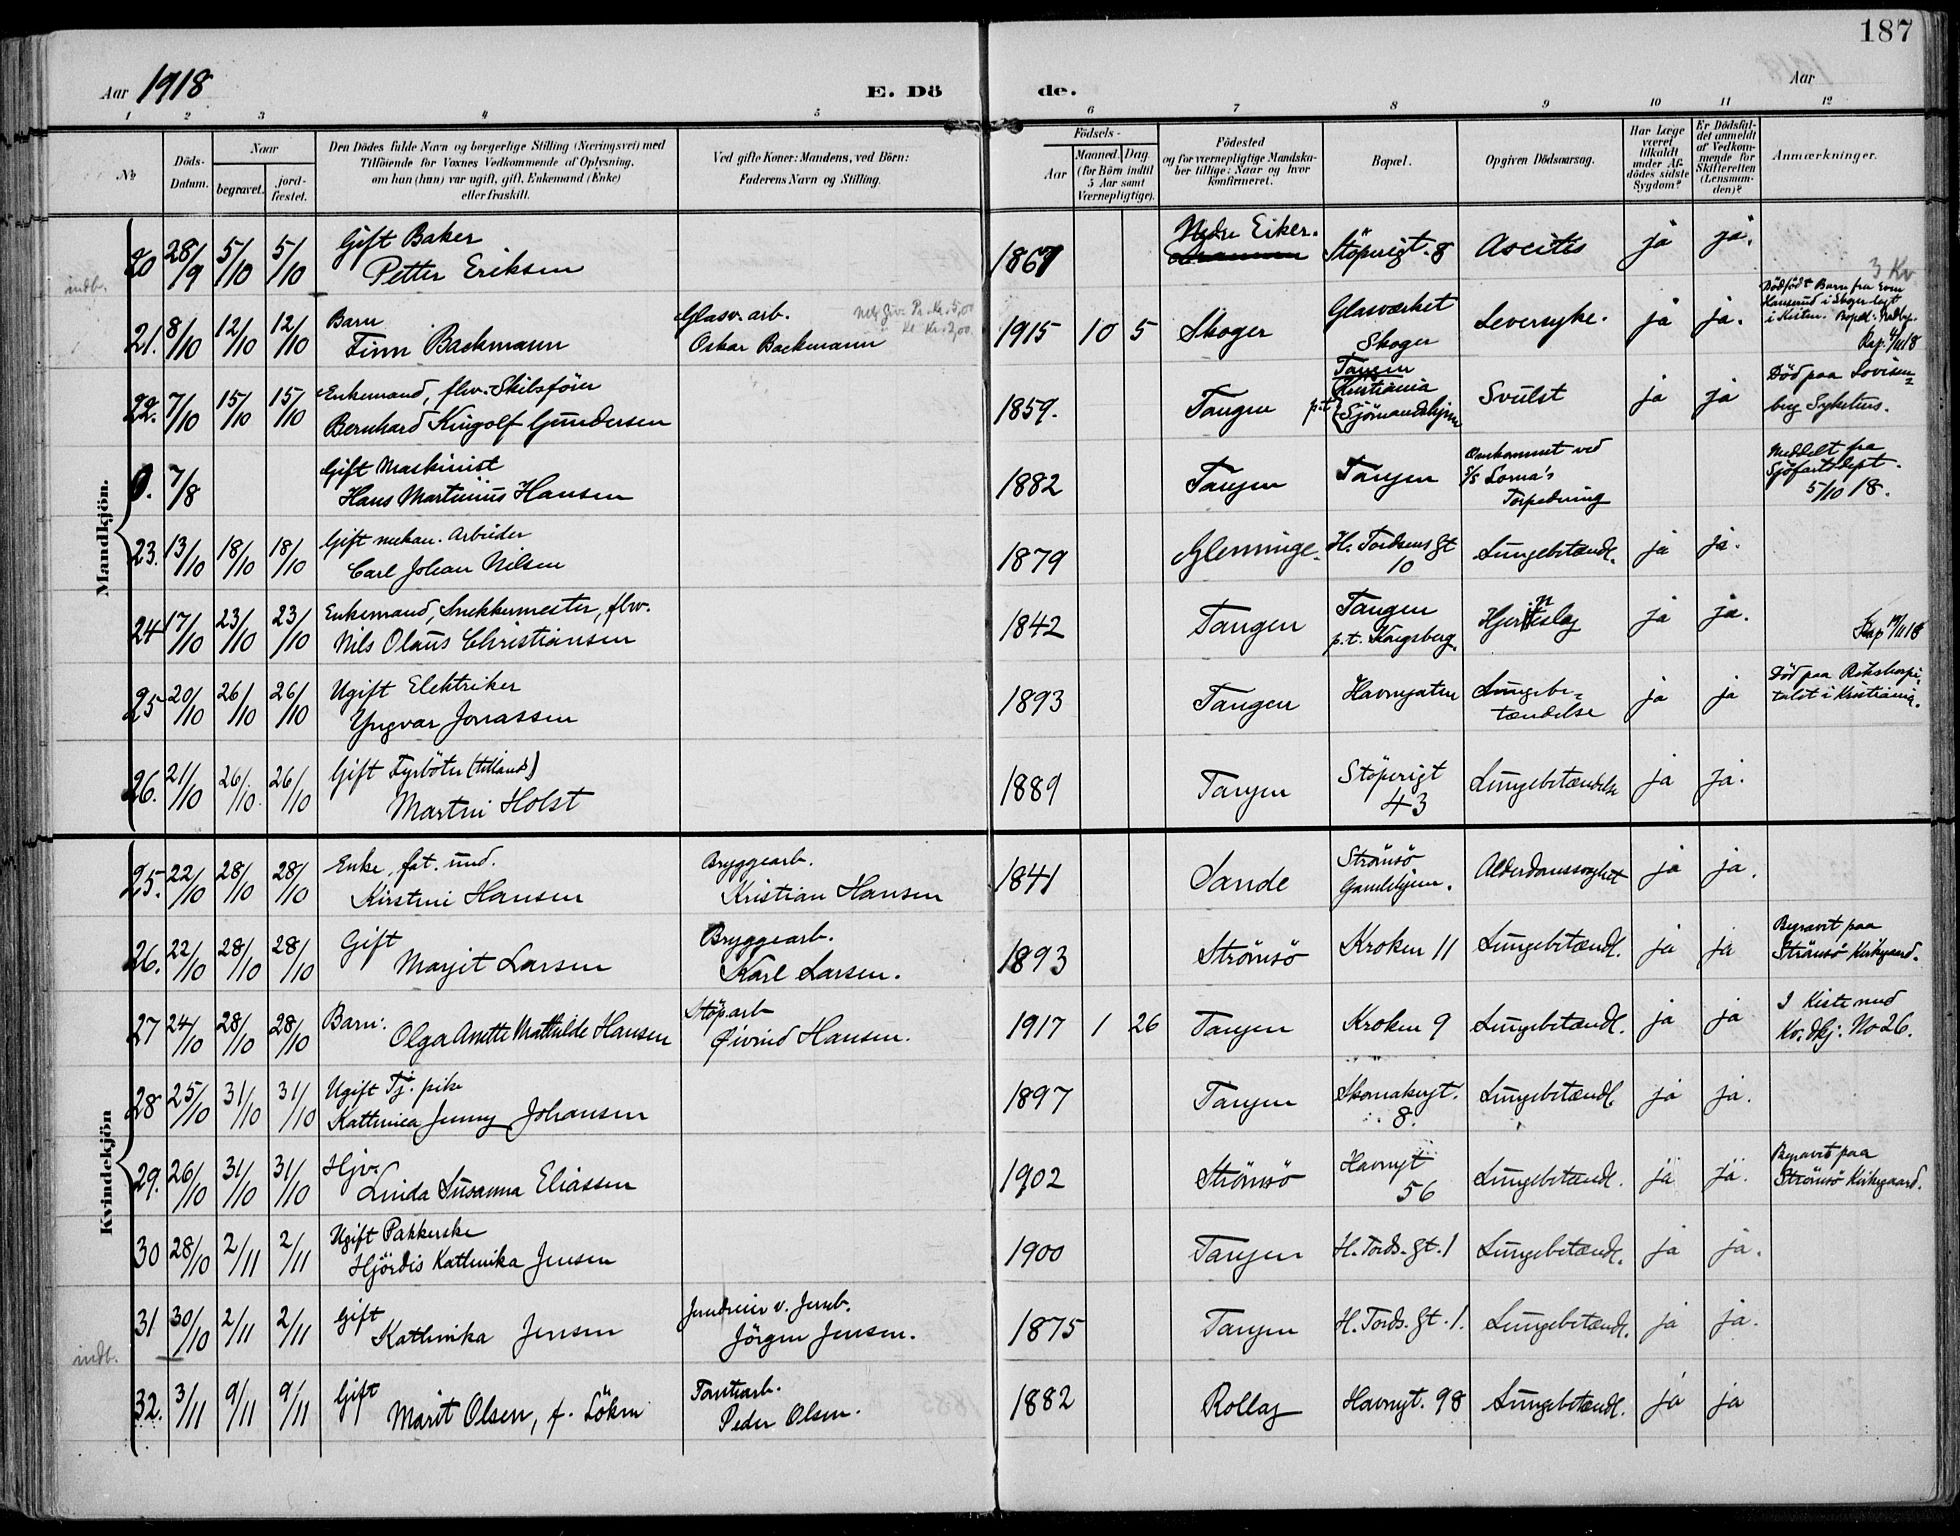 187
Aar 1918 E. Dö de. Aar
1 2 3 4 5 6 7 8 9 10 11 12
No
Döds-
Datum.
Naar
begravet.
jord-
fæstet.
Den Dödes fulde Navn og borgerlige Stilling (Næringsvei) med
Tilföiende for Voxnes Vedkommende af Oplysning,
om han (hun) var ugift, gift, Enkemand (Enke)
eller fraskilt.
Ved gifte Koner: Mandens, ved Börn:
Faderens Navn og Stilling.
Födsels-
Aar
Maaned. Dag
(for Börn indtil
5 Aar samt
Værnepligtige).
Födested
og for værnepligtige Mandska-
ber tillige: Naar og hvor
konfirmeret.
Bopæl.
Opgiven Dödsaarsag.
Har Læge
været
tilkaldt
under Af-
dødes sidste
Sygdom?
Er Dödsfal-
det anmeldt
af Vedkom-
mende for
Skifteretten
(Lensman-
den)?
Anmærkninger.
Mandkjön.
indb.
20 28/9 5/10 5/10 Gift Baker
Petter Eriksen
1867 Nedre Eiker. Støperigt. 8 Ascites ja ja.
3 Kv
21. 8/10 12/10 12/10 Barn
Finn Backmann
Glasv. arb.
Oskar Backmann
1915 10 5 Skoger Glasværket
Skoger
Leversyke. ja ja.
Dødfødt Barn fra Sven
Hanserud i Skoger lagt
i Kisten.
22. 7/10 15/10 15/10 Enkemand, flv. Skibsfører
Bernhard Kingolf Gundersen
1859. Tangen Tangen
p.t. Kristiania
Sjömandshjem
Svulst ja ja
Död paa Lovisen-
berg Sykehus.
0. 7/8 Gift Maskinist
Hans Martinius Hansen
1882 Tangen Tangen
Omkommet ved
S/S Lorna's
Torpedering
Meddelt fra
Sjöfartsdept.
5/10 18.
23. 13/10 18/10 18/10 Gift mekan. Arbeider
Carl Johan Nilsen
1879 Glemminge. H. Tordsens gt
10
Lungebetændl. ja ja.
24 17/10 23/10 23/10 Enkemand, Snekkermester, flv.
Nils Olaus Christiansen
1842 Tangen Tangen
p.t. Kongsberg.
ja ja.
25 20/10 26/10 26/10 Ugift Elektriker
Yngvar Jonassen
1893 Tangen Havnegaten Lungebe-
tændelse
ja ja
Död paa Rikshospi-
talet i Kristiania.
26. 21/10 26/10 26/10 Gift Fyrböter (tillands)
Martin Holst
1889 Tangen Stöperigt
43
Lungebetændelse ja ja.
Kvindekjön
25. 22/10 28/10 28/10 Enke, fat. und.
Kirstine Hansen
Bryggearb.
Kristian Hansen
1841 Sande Strömsö
Gamlehjem.
Alderdomssvaghet ja ja.
26. 22/10 28/10 28/10 Gift
Margit Larsen
Bryggearb.
Karl Larsen.
1893 Strömsö Kroken 11 Lungebetændl. ja ja
Begravet paa
Strömsö Kirkegaard.
27 24/10 28/10 28/10 Barn:
Olga Anette Mathilde Hansen
Støp arb
Øivind Hansen.
1917 1 26 Tangen Kroken 9 Lungebetændl. ja ja
I Kiste med
Kv. dkj. No 26.
28 25/10 31/10 31/10 Ugift Tj. pike
Kathinca Jenny Johansen
1897 Tangen Skomakergt.
8.
Lungebetændl. ja ja.
29. 26/10 31/10 31/10 Hjv.
Linda Susanna Eliassen
1902 Strömsö Havnegt
56
Lungebetændl. ja ja.
Begravet paa
Strömsö Kirkegaard.
30 28/10 2/11 2/11 Ugift Pakkerske
Hjördis Kathinka Jensen
1900 Tangen H. Tords. gt. 1 Lungebetændl. ja ja.
indb.
31 30/10 2/11 2/11 Gift
Kathinka Jensen
Jörgen Jensen.
1875 Tangen H. Tords. Gt. 1. Lungebetændl. ja ja.
32. 3/11 9/11 9/11 Gift
Marit Olsen, f. Löken
Tomtearb.
Peder Olsen.
1882 Rollag Havnegt. 98 Lungebetændl. ja ja